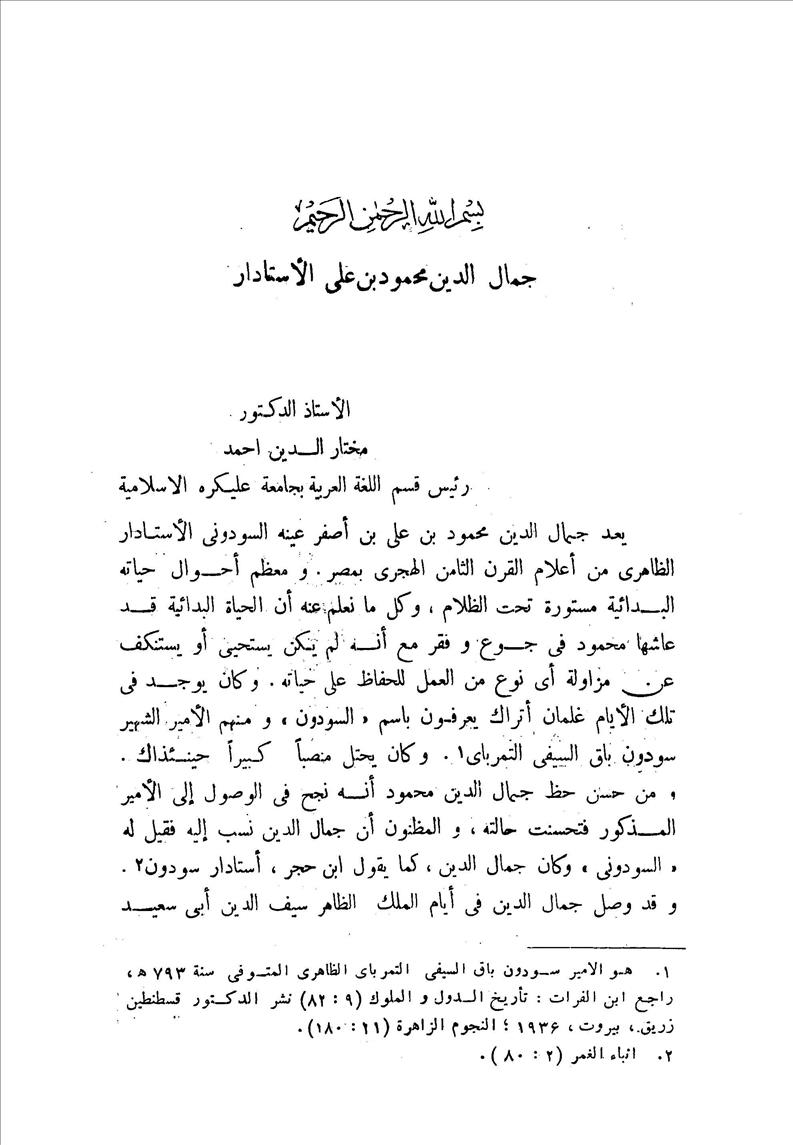 بسم الله الرحمن الرحيم
جمال الدين محمود بن على الأستادار
الأستاذ الدكتور
مختار الدين احمد
رئيس قسم اللغة العربية بجامعة عليكره الاسلامية
يعد جمال الدين محمود بن على بن أصفر عينه السودونى الأستادار
الظاهرى من أعلام القرن الثامن الهجرى بمصر. و معظم أحوال حياته
البدائية مستورة تحت الظلام ، وكل ما نعلم عنه أن الحياة البدائية قد
عاشها محمود فى جوع و فقر مع أنه لم يكن يستحيى أو يستنكف
عن مزاولة أى نوع من العمل للحفاظ على حياته . وكان يوجد فى
تلك الأيام غلمان أتراك يعرفون باسم «السودون» و منهم الأمير الشهير
سودون باق السيفى التمرباى١ . وكان يحتل منصباً كبيراً حينئذاك .
و من حسن حظ جمال الدين محمود أنه نجح فى الوصول إلى الأمير
المذكور فتحسنت حالته ، و المظنون أن جمال الدين نسب إليه فقيل له
« السودونى » وكان جمال الدين ، كما يقول ابن حجر ، أستادار سودون٢ .
و قد وصل جمال الدين فى أيام الملك الظاهر سيف الدين أبى سعيد
١. هو الامير سودون باق السيفى التمرباى الظاهرى المتوفى سنة ٧٩٣ ه ،
راجع ابن الفرات : تأريخ الدول و الملوك (٩ : ٨٢) نشر الدكتور قسطنطين
زريق ، بيروت ، ١٩٣۶ ؛ النجوم الزاهرة (١١ : ١٨٠).
٢. انباء الغمر (٢ : ٨٠) .